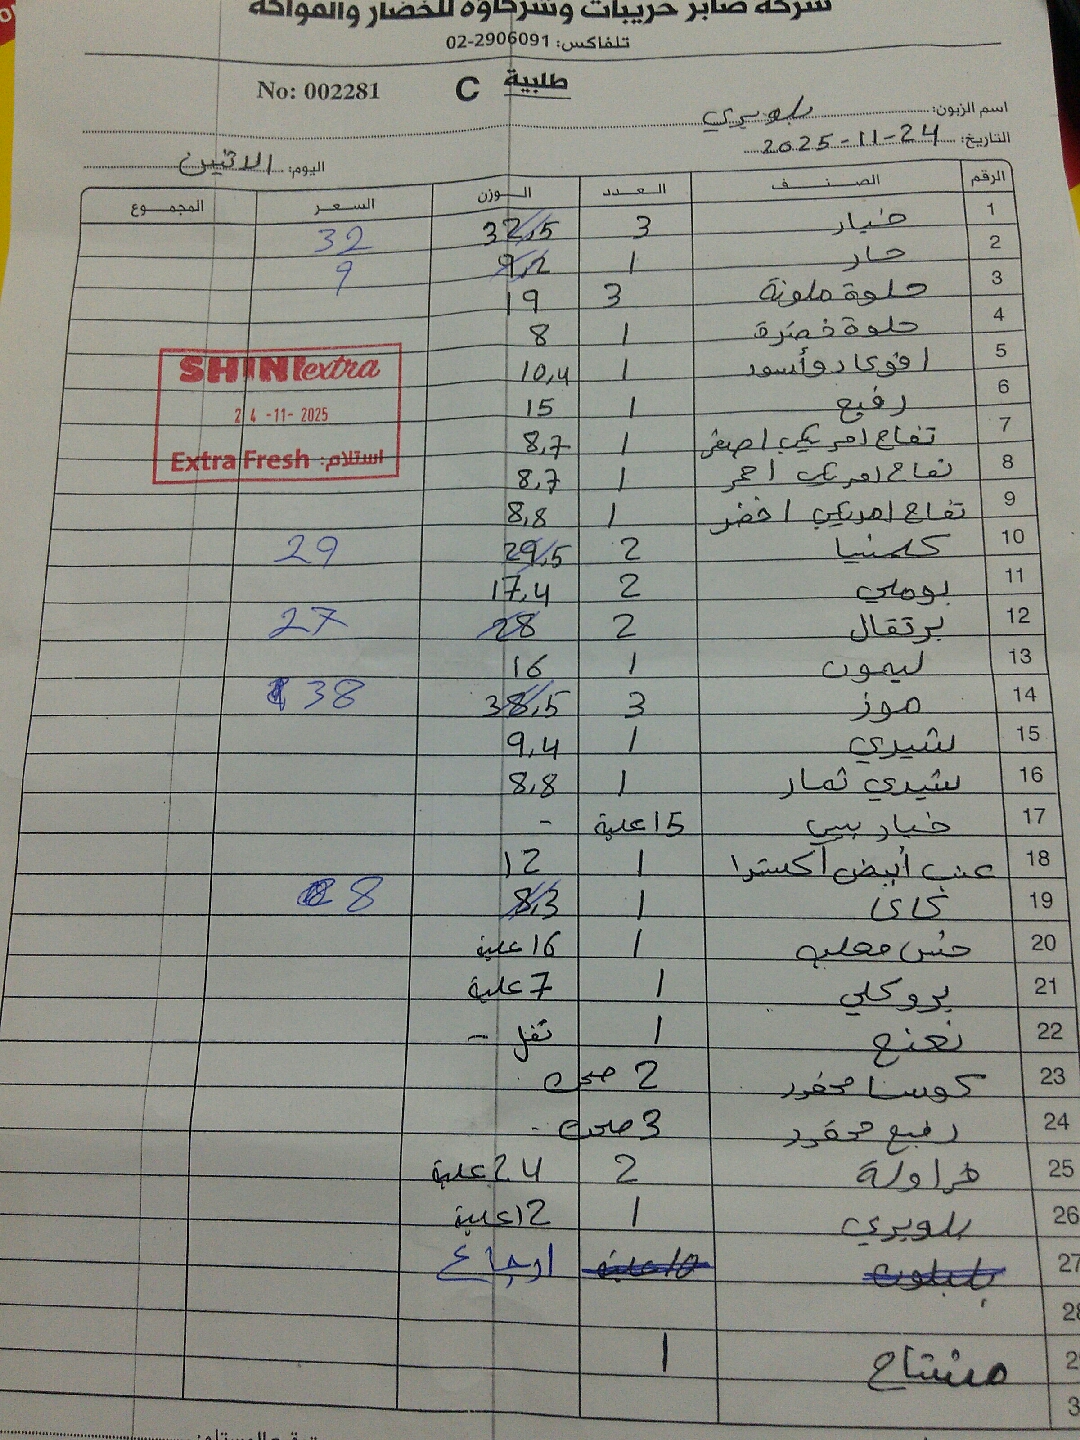 شركة صابر حريبات وشركاؤه للخضار والفواكه
تلفاكس: 02-2906091
No: 002281 C طلبية
اسم الزبون: بلوبيري
التاريخ: 24-11-2025
اليوم: الاثنين
الرقم الصنف العدد الوزن السعر المجموع
1 خيار 3 32,5 32
2 حار 1 9,2 9
3 حلوة ملونة 3 19
4 حلوة خضرة 1 8
5 افوكادو أسود 1 10,4
6 رفيع 1 15
7 تفاح امريكي اصفر 1 8,7
8 تفاح امريكي احمر 1 8,7
9 تفاح امريكي اخضر 1 8,8
10 كلمنتيا 2 29,5 29
11 بوملي 2 17,4
12 برتقال 2 28 27
13 ليمون 1 16
14 موز 3 38,5 38
15 شيري 1 9,4
16 شيري ثمار 1 8,8
17 خيار بيبي 15 علبة -
18 عنب أبيض أكسترا 1 12
19 كاكا 1 8,3 8
20 خس معلب 1 16 علبة
21 بروكلي 1 7 علبة
22 نعنع 1 تفل -
23 كوسا محفور 2 صحن
24 رفيع محفور 3 صحن -
25 فراولة 2 24 علبة
26 بلوبيري 1 12 علبة
27 10 علبة ارجاع
28
منتاح 1
SHINI extra
24-11-2025
استلام: Extra Fresh